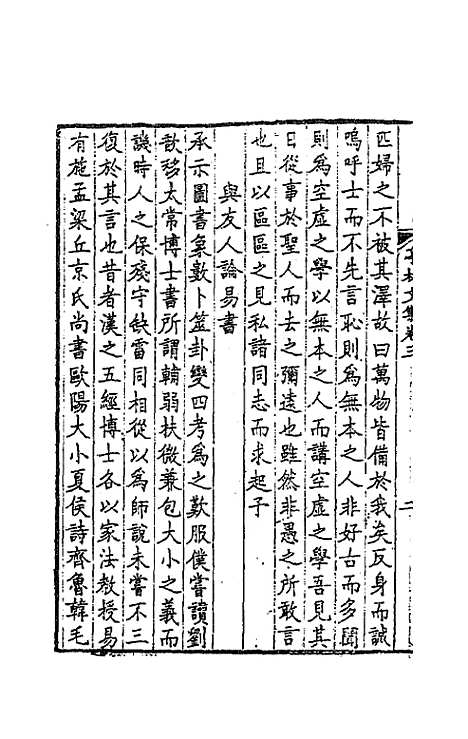 匹婦之不被其澤故曰萬物皆備於我矣反身而誠
嗚呼士而不先言恥則為無本之人非好古而多聞
則為空虛之學以無本之人而講空虛之學吾見其
日從事於聖人而去之彌遠也雖然非愚之所敢言
也且以區區之見私諸同志而求起子
與友人論易書
承示圖書象數卜筮卦變四考為之歎服僕嘗讀劉
歆移太常博士書所謂輔弱扶微兼包大小之義而
譏時人之保殘守缺雷同相從以為師說未嘗不三
復於其言也昔者漢之五經博士各以家法教授易
有施孟梁丘京氏尚書歐陽大小夏侯詩齊魯韓毛